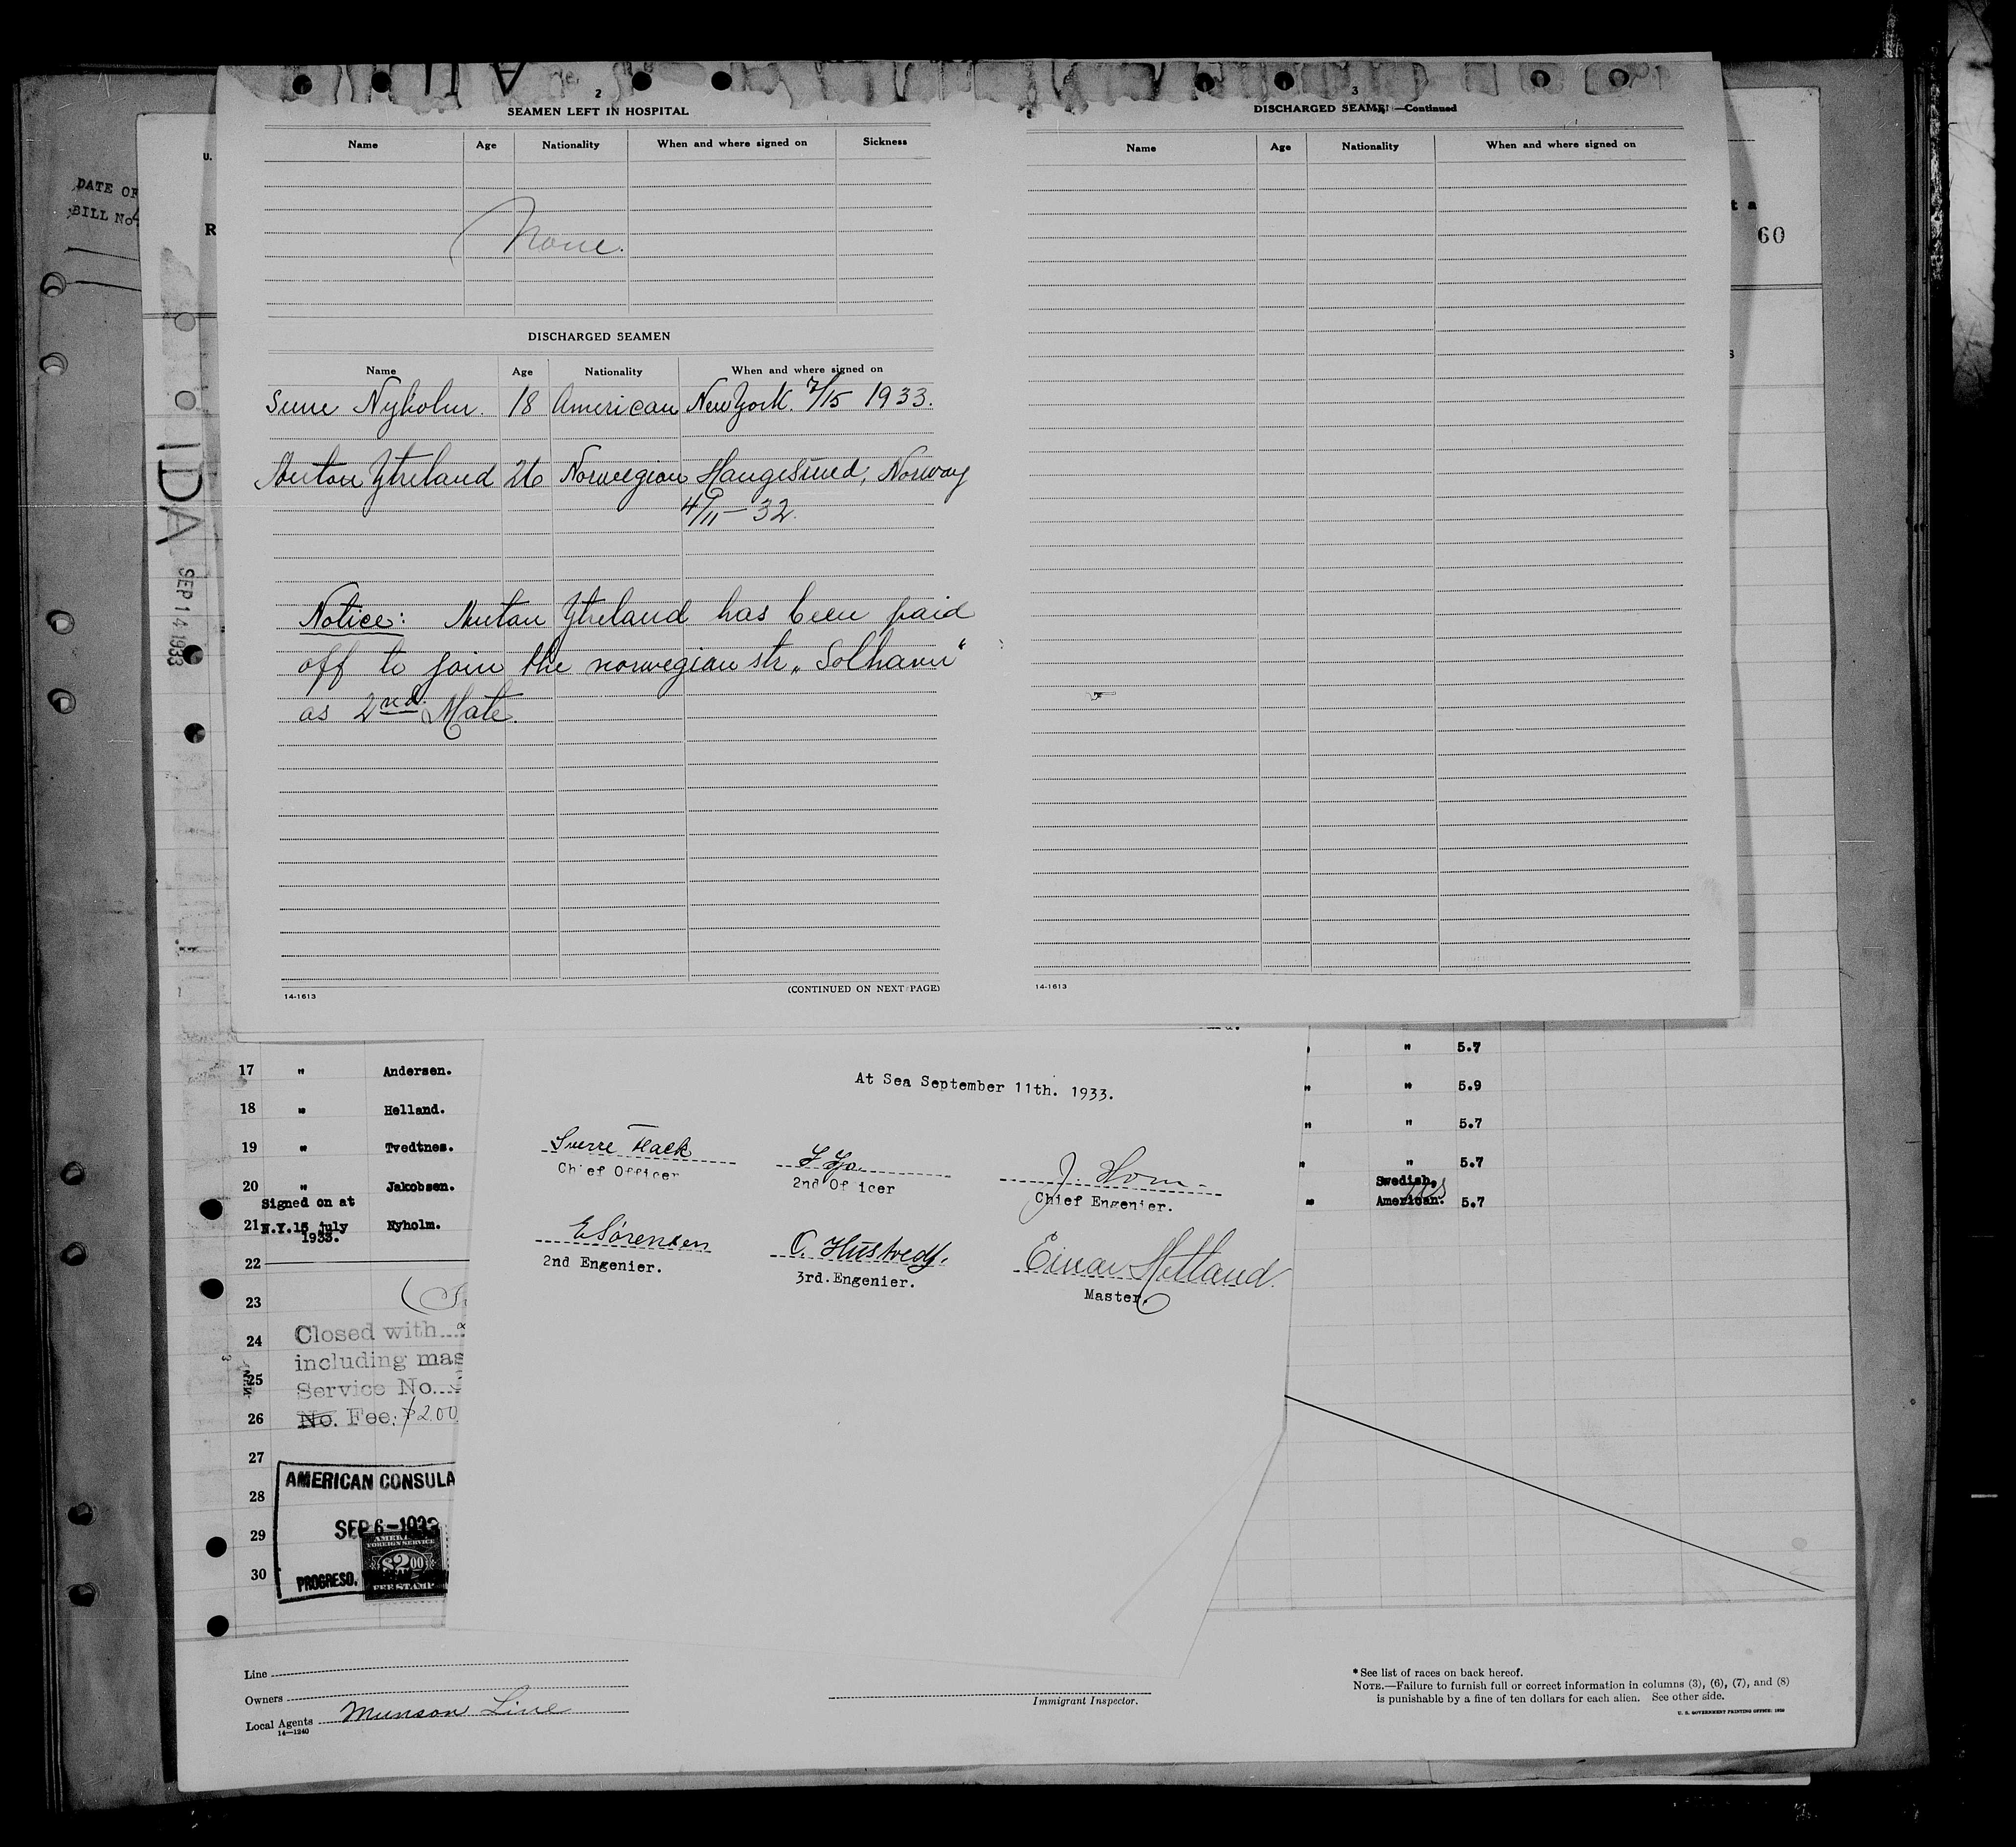 2
SEAMEN LEFT IN HOSPITAL
Name Age Nationality When and where signed on Sickness
None.
DISCHARGED SEAMEN
Name Age Nationality When and where signed on
Sune Nyholm. 18 American New York. 7/15 1933.
Anton Ytreland 26 Norwegian Haugesund, Norway
4/11-32.
Notice: Anton Ytreland has been paid
off to join the norwegian str. „Solhavn“
as 2nd. Mate.
14-1613
(CONTINUED ON NEXT PAGE)
3
DISCHARGED SEAMEN—Continued
Name Age Nationality When and where signed on
14-1613
U.
DATE OF
BILL No
R
t a
60
s
IDA
SEP 14 1933
" 5.7
17 " Andersen. " " 5.9
18 " Helland. " " 5.7
19 " Tvedtnes. " " 5.7
20 " Jakobsen.
Signed on at
21 N.Y.15 july Nyholm. " Swedish, American. 5.7
1933.
22
23
24 Closed with
including mas
25 Service No.
26 No. Fee: $2.00
27
AMERICAN CONSULA
28
SEP 6-1933
29
AMERI
FOREIGN SERVICE
$2.00
FEE STAMP
30 PROGRESO,
At Sea September 11th. 1933.
Sverre
Chief Officer
2nd Of icer
J. Hom
Chief Engenier.
E Sörensen
2nd Engenier.
C. Hustvedt.
3rd.Engenier.
Einar Hetland.
Master.
Line
Owners
Local Agents Munson Line
14—1240
Immigrant Inspector.
* See list of races on back hereof.
NOTE.—Failure to furnish full or correct information in columns (3), (6), (7), and (8)
is punishable by a fine of ten dollars for each alien. See other side.
U. S. GOVERNMENT PRINTING OFFICE: 1930